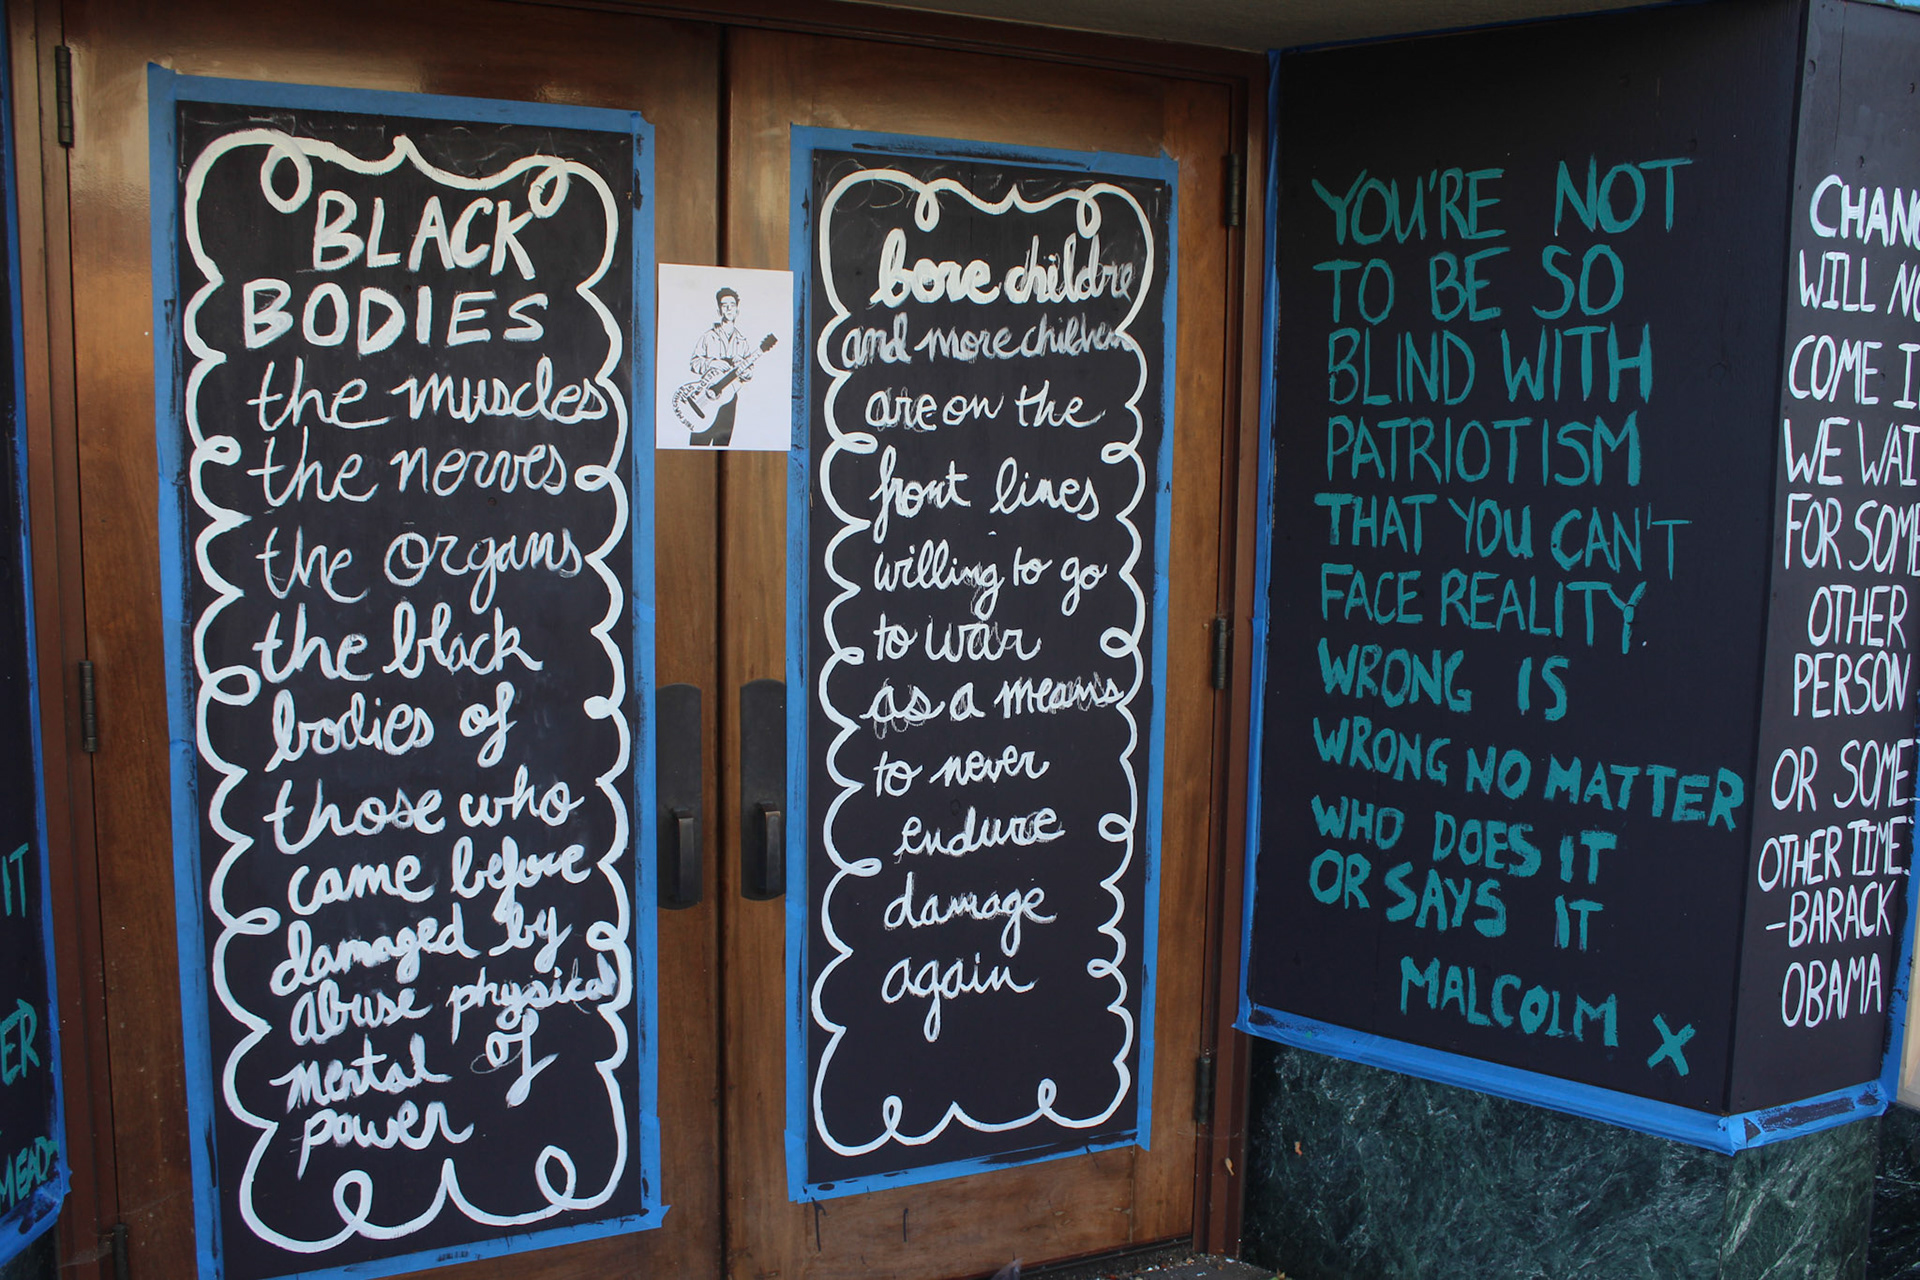 BLACK
BODIES
the muscles
the nerves
the organs
the black
bodies of
those who
came before
damaged by
abuse physical
mental of
power
bore childre
and more children
are on the
front lines
willing to go
to war
as a means
to never
endure
damage
again
YOU'RE NOT
TO BE SO
BLIND WITH
PATRIOTISM
THAT YOU CAN'T
FACE REALITY.
WRONG IS
WRONG NO MATTER
WHO DOES IT
OR SAYS IT
MALCOLM X
CHANG
WILL NO
COME I
WE WAI
FOR SOME
OTHER
PERSON
OR SOME
OTHER TIME.
-BARACK
OBAMA
IT
ER
MEAD